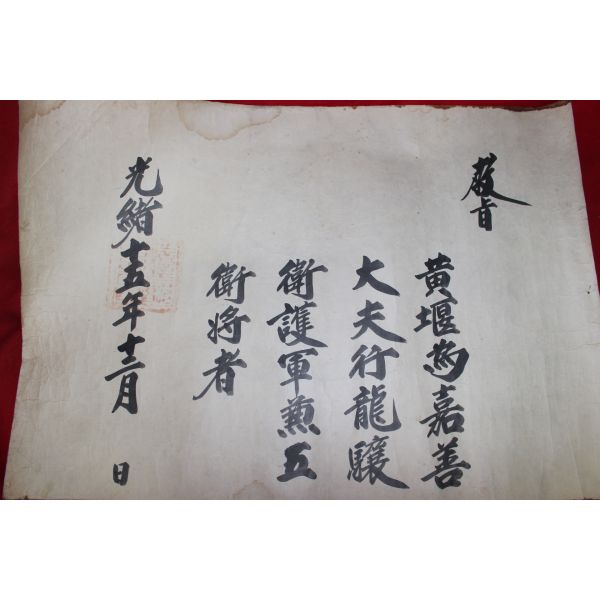 敎旨
黃堰為嘉善
大夫行龍驤
衛護軍兼五
衛將者
光緖十五年十二月
日